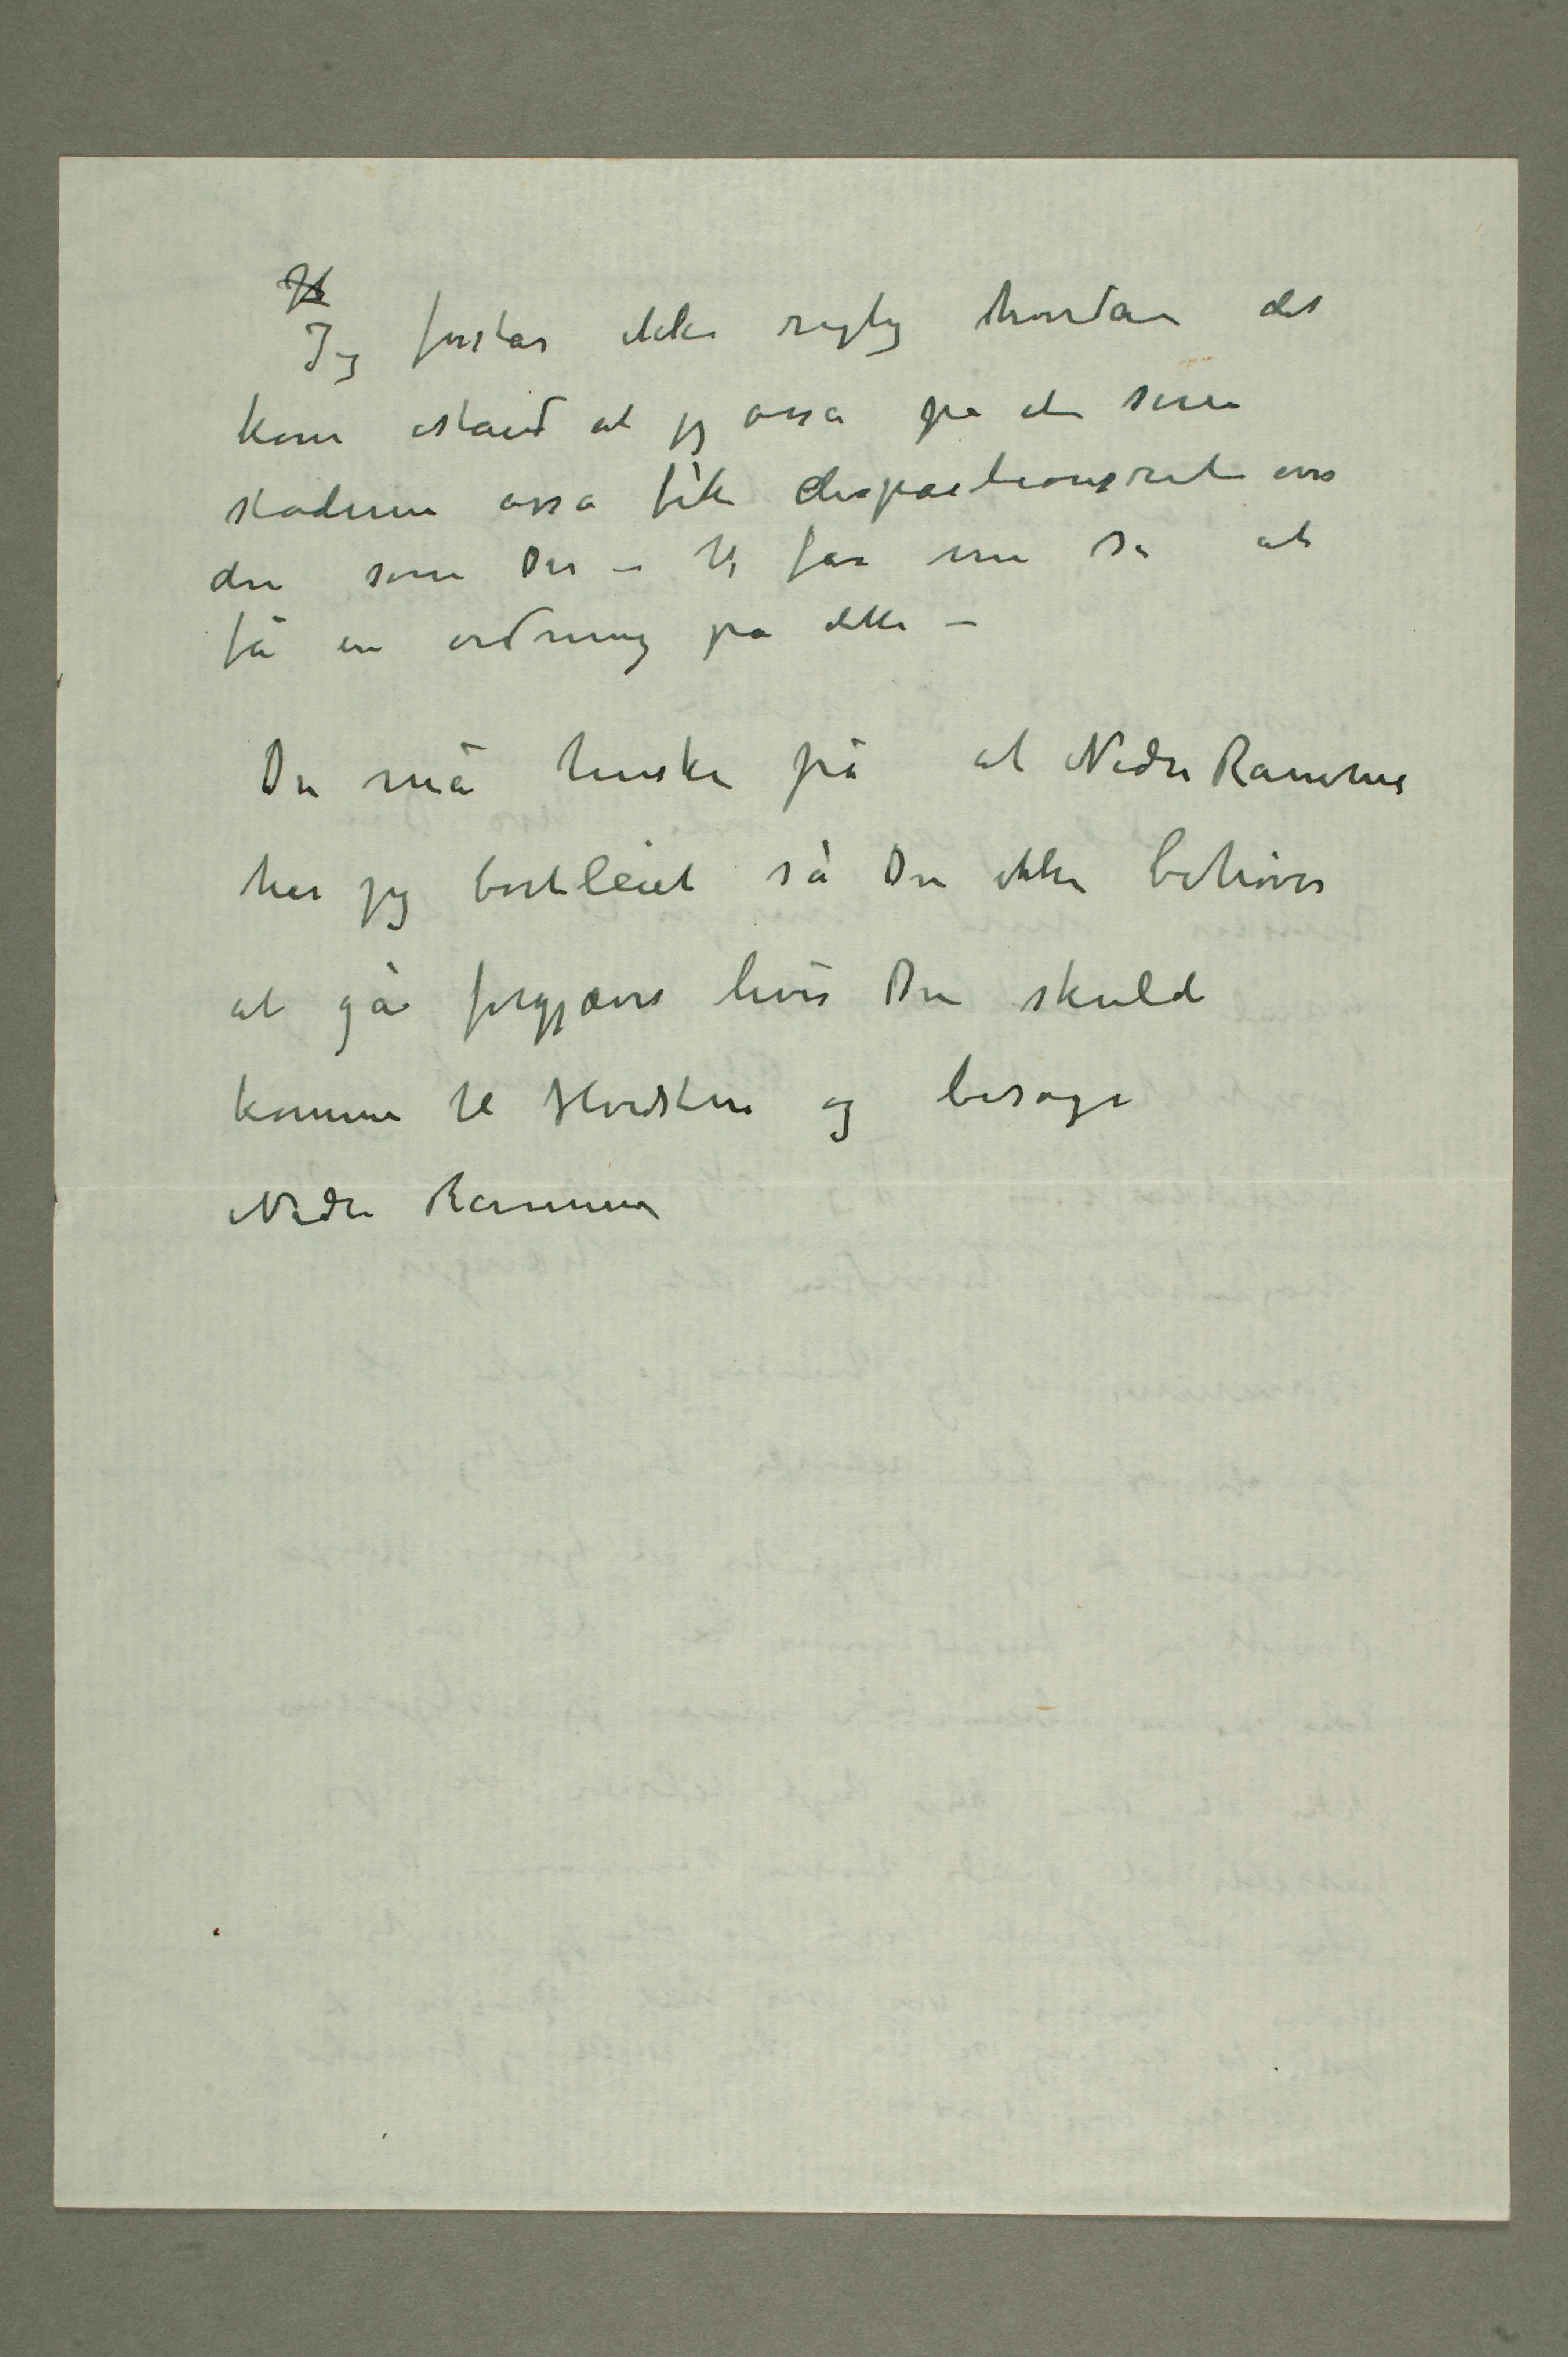 Jeg forstår ikke rigtig hvordan det
kom istand at jeg også på et senere
stadium også fik dispositionsret over
den som Du – Vi får nu se at
få en ordning på dette –
Du må huske på at Nedre Ramme
har jeg bortleiet så Du ikke behøver
at gå forgjæves hvis Du skulde
komme til Hvidsten og besøge
Nedre Ramme